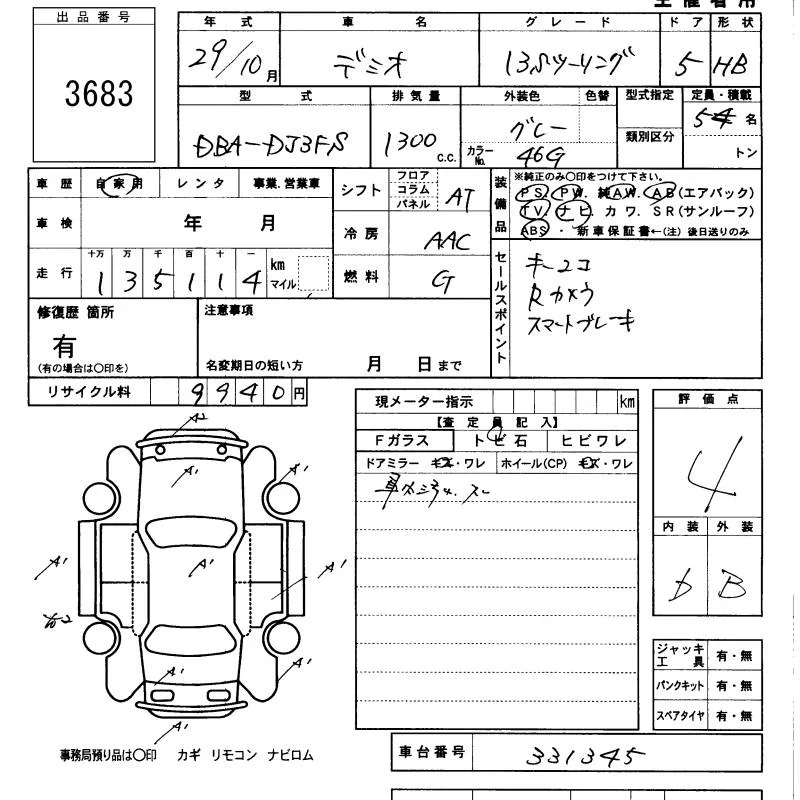 出品番号
3683
年式 車名 グレード ドア 形状
29/10月 デミオ 13Sツーリング 5 HB
型式 排気量 外装色 色替 型式指定 定員・積載
DBA-DJ3FS 1300 c.c. グレー カラーNo. 46G 類別区分 5名 トン
車歴 自家用 レンタ 事業.営業車
車検 年 月
走行 十万 万 千 百 十 一
1 3 5 1 1 4 km マイル
シフト フロア コラム パネル AT
冷房 AAC
燃料 G
装備品 ※純正のみ○印をつけて下さい。
PS. PW. 純AW. AB(エアバック)
TV. ナビ. カワ. SR(サンルーフ)
ABS ・ 新車保証書←(注) 後日送りのみ
セールスポイント
キーユコ
Rカメラ
スマートブレーキ
修復歴 箇所
有
(有の場合は○印を)
注意事項
名変期日の短い方 月 日まで
リサイクル料 9940円
現メーター指示 km
【査定員記入】
Fガラス トビ石 ヒビワレ
ドアミラー キズ・ワレ ホイール(CP) キズ・ワレ
評価点
4
内装 外装
B
A2
A'
A'
A'
A'
A'
A'
A'
A'
A'
ジャッキ工具 有・無
パンクキット 有・無
スペアタイヤ 有・無
事務局預り品は○印 カギ リモコン ナビロム
車台番号 331345